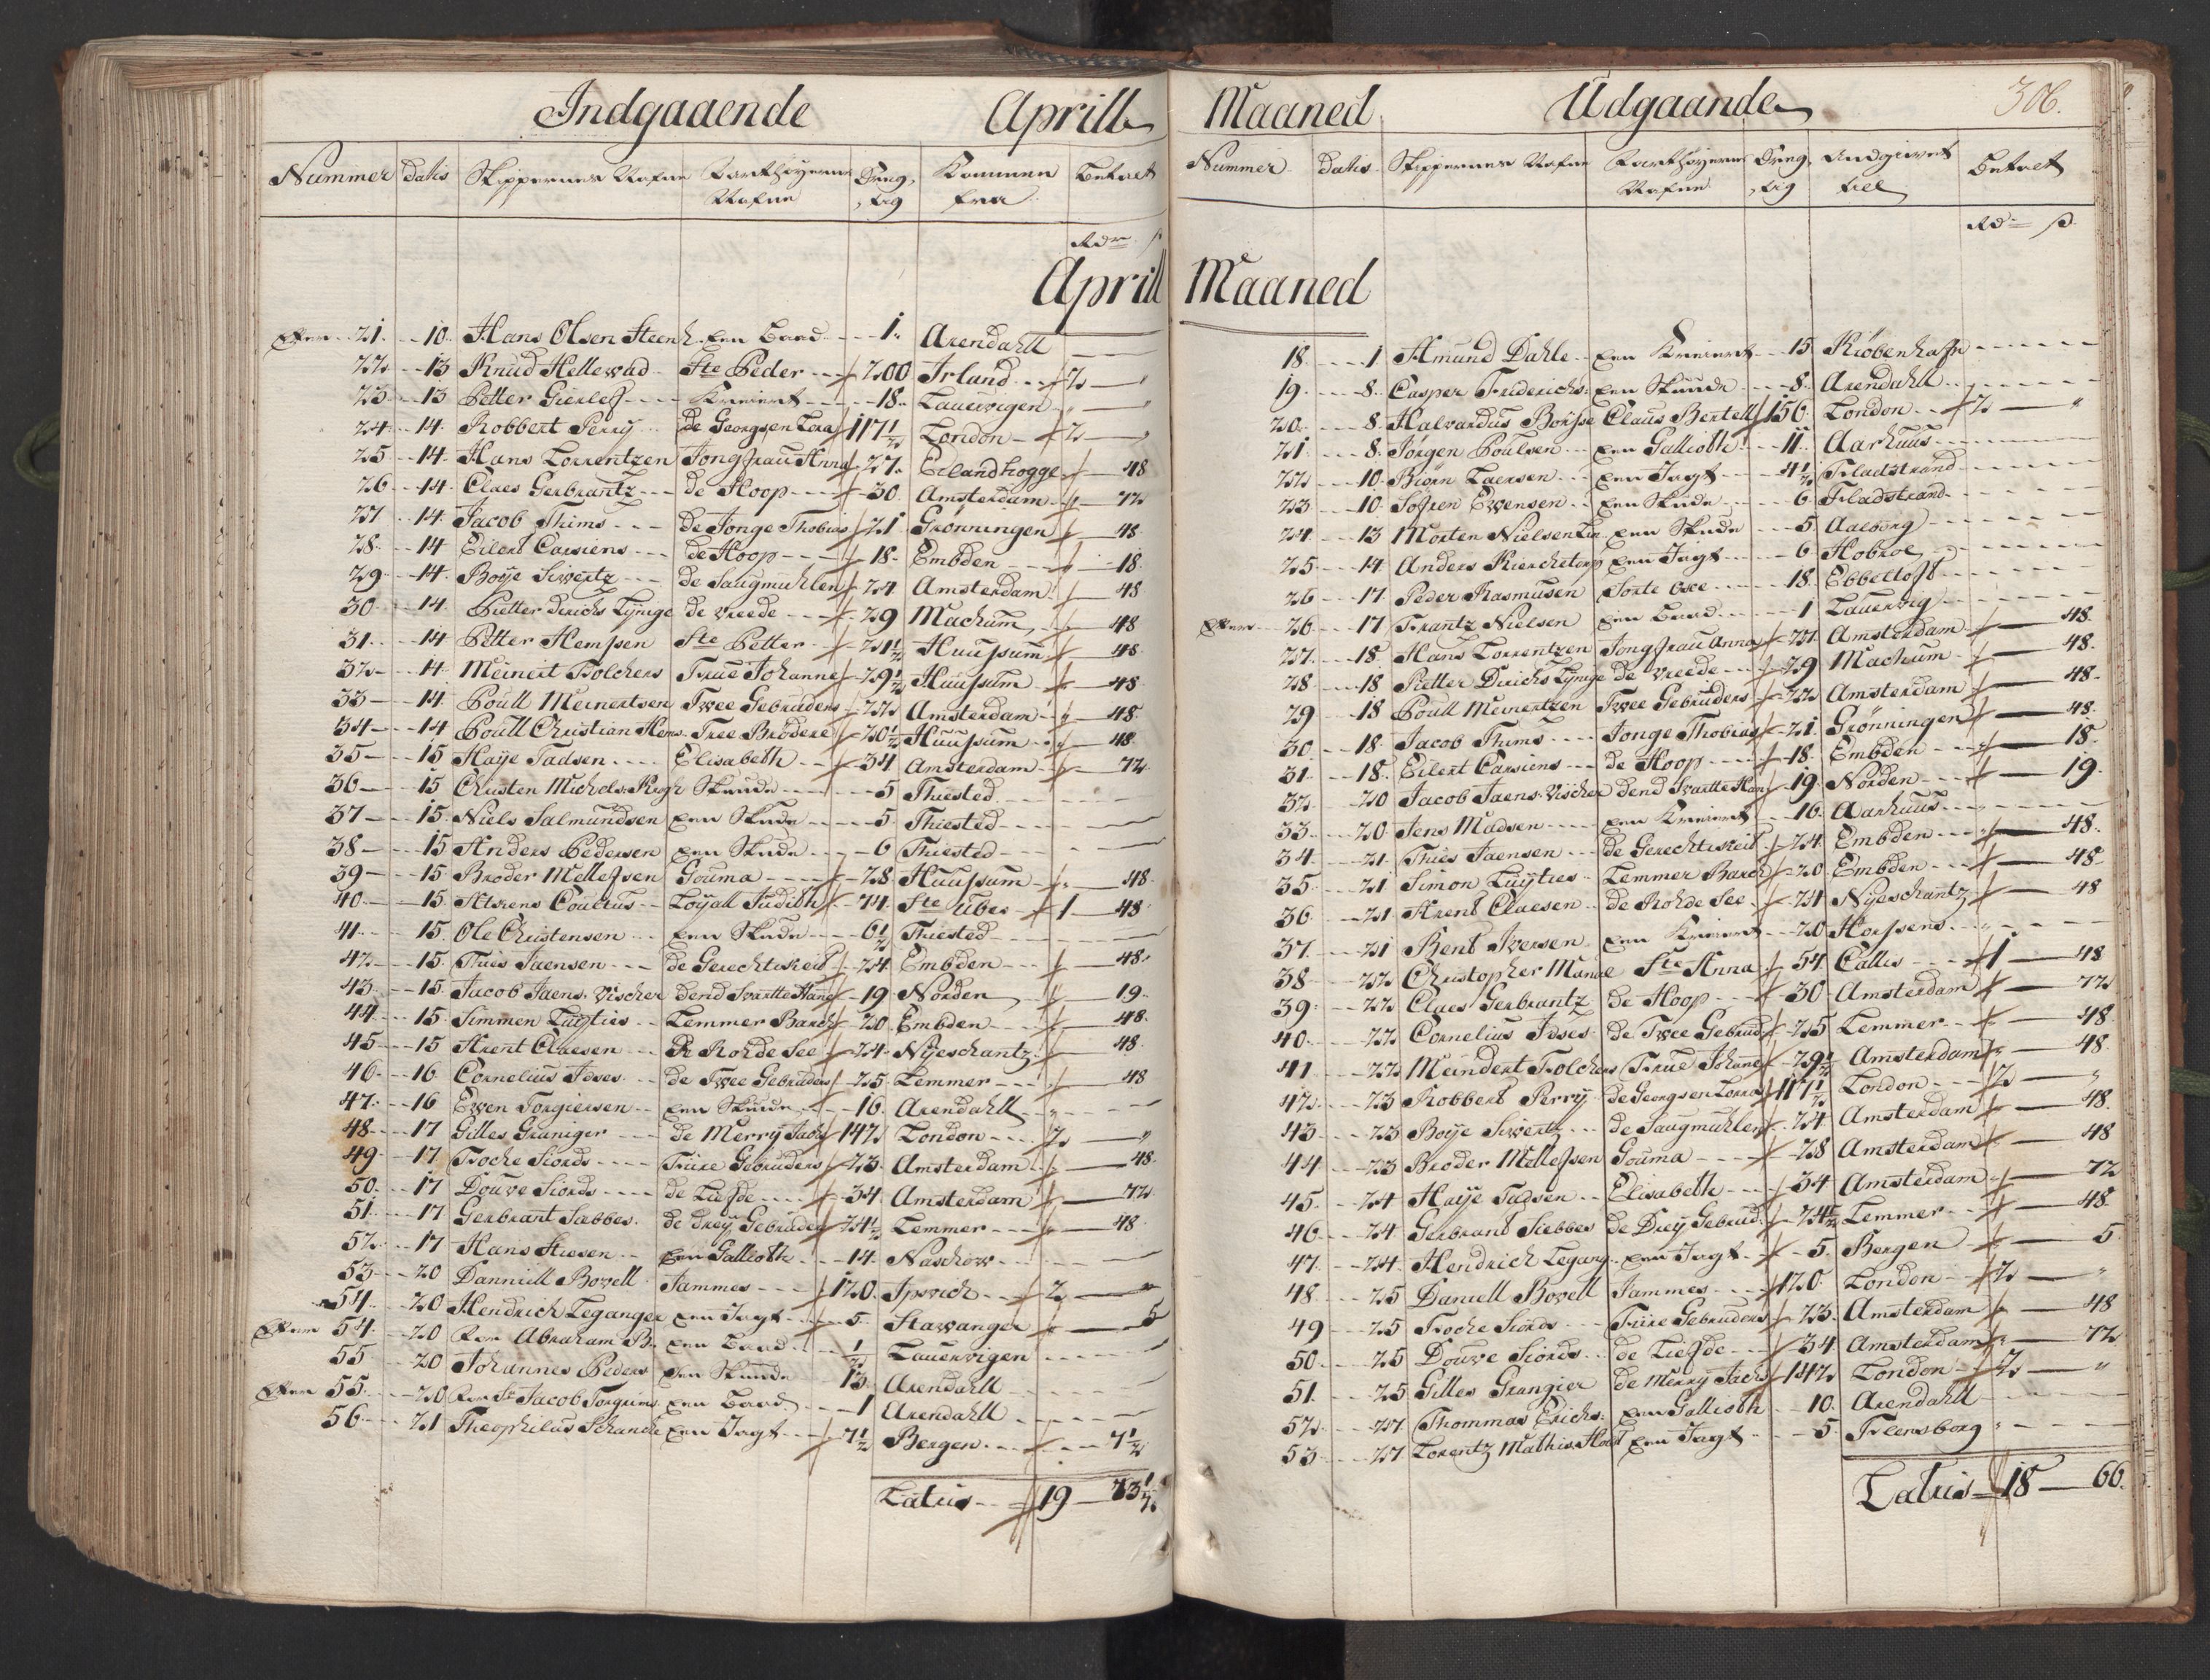 Indgaaende Aprill
Nummer datis Skippernes Nafne Fartøyernes Nafne Dreg, tig Kommen fra Betalt
Rdr ß
Aprill
21 10 Hans Olsen Steenh. Een Baad 1 Arendahll
22 13 Knud Hellewad Ste Peder 200 Irland 2 "
23 13 Petter Gierløf Kreiert 18 Lauervigen
24 14 Robbert Perrÿ de Georgs en Lora 117½ London 2 "
25 14 Hans Lorrentzen Jongfrau Anna 27 Eilandhogge 48
26 14 Claes Gerbrantz de Hoop 30 Amsterdam 72
27 14 Jacob Thims de Jonge Thobias 21 Grønningen 48
28 14 Eilert Carsiens de Hoop 18 Embden 18
29 14 Boÿe Siwertz de Saugmuhlen 24 Amsterdam 48
30 14 Pietter Dirichs Lÿnige de Vreede 29 Mackum 48
31 14 Petter Hemsen Ste Petter 21½ Huusum 48
32 14 Meinert Folchers Frue Johanne 29½ Huusum 48
33 14 Poull Meinertsen Twee Gebruders 22 Amsterdam 48
34 14 Poull Christian Hems Tree Brødere 20½ Huusum 48
35 15 Haÿe Tadsen Elisabeth 34 Amsterdam 72
36 15 Christen Michels: Skuude 5 Thiested
37 15 Niels Salmundsen Een Skude 5 Thiested
38 15 Anders Pedersen Een Skude 6 Thiested
39 15 Broder Mellefsen Gouma 28 Huusum 48
40 15 Loÿall Judith 74 Ste Ubes 1 48
41 15 Ole Christensen Een Skude 6½ Thiested
42 15 Thies Jaensen de Gerechtikeid 24 Embden 48
43 15 Jacob Jaens Vischer dend Svartte Hane 19 Norden 19
44 15 Simmen Luÿties Lemmer Barch 20 Embden 48
45 15 Arent Claesen De Rohde See 24 Nÿeschantz 48
46 16 Cornelius Idses de Twee Gebruders 25 Lemmer 48
47 16 Ewen Torgiersen Een Skude 16 Arendahll
48 17 Gilles Graniger de Merrÿ Jachs 142 London 2 "
49 17 Foche Siords Fiire Gebruders 23 Amsterdam 48
50 17 Douwe Siords de Liefde 34 Amsterdam 72
51 17 Gerbrant Sabbes de Dreÿ Gebruder 24½ Lemmer 48
52 17 Hans Een Gallioth 14 Naschow
53 20 Danniell Bovell Jammes 120 Ipswich 2 "
54 20 Hendrich Teganger Een Jagt 5 Stawanger 5
54 20 Abraham B. Een Baad ½ Lauervigen
55 20 Johannes Peders Een Skude 13 Arendahll
55 20 Jacob Torgrims Een Baad 1 Arendahll
56 21 Theophilus Schancke Een Jagt 7½ Bergen 7½
Latus 19 73½
Maaned Udgaande 306.
Nummer datis Skippernes Nafne Fartøyernes Nafne Dreg, tig Andgivet till Betalt
Rd ß
Maaned
18 1 Amund Dahle Een Kreiert 15 Kiøbenhafn
19 8 Casper Friderichs: Een Skuude 8 Arendahll
20 8 Halvardus Børsse Claus Bertell 156 London 2 "
21 8 Jørgen Poulsen Een Gallioth 11 Aarhuus
22 10 Biørn Laersen Een Jagt 4½ Fladstrand
23 10 Sofren Ewensen Een Skude 6 Fladstrand
24 13 Morten Nielsen Een Skude 5 Aalborg
25 14 Anders Kierchetorp Een Jagt 6 Hobroe
26 17 Peder Rasmusen Sorte Øre 18 Ebbeltoft
26 17 Frantz Nielsen Een Baad 1 Lauervig
27 18 Hans Lorrentzen Jongfrau Anna 27 Amsterdam 48
28 18 Pietter Dirichs Lÿnige de Vreede 29 Mackum 48
29 18 Poull Meinertzen Twee Gebruders 22 Amsterdam 48
30 18 Jacob Thims Jonge Thobias 21 Grønningen 48
31 18 Eilert Carsiens de Hoop 18 Embden 18
32 20 Jacob Jaens Vischer dend Svartte Han 19 Norden 19
33 20 Jens Madsen Een Kreiert 16 Aarhuus
34 21 Thies Jaensen de Gerechtikeid 24 Embden 48
35 21 Simon Luÿties Lemmer Barch 20 Embden 48
36 21 Arent Claesen de Rohde See 24 Nÿeschantz 48
37 21 Bent Iversen Een Kreiert 20 Horsens
38 22 Christopher Ste Anna 54 Callis 1 48
39 22 Claes Gerbrantz de Hoop 30 Amsterdam 72
40 22 Cornelius Idses de Twee Gebrud: 25 Lemmer 48
41 22 Meindert Folchers Frue Johanne 29½ Amsterdam 48
42 23 Robbert Perrÿ de Georgs en Lorra 117½ London 2 "
43 23 Boÿe Siwertz de Saugmuhlen 24 Amsterdam 48
44 23 Broder Mellefsen Gouma 28 Amsterdam 48
45 24 Haÿe Tadsen Elisabeth 34 Amsterdam 72
46 24 Gerbrant Siebbes de Dreÿ Gebrud: 24½ Lemmer 48
47 24 Hendrich Tegang. Een Jagt 5 Bergen 5
48 25 Daniell Bovell Jammes 120 London 2 "
49 25 Foche Siords Fiire Gebruders 23 Amsterdam 48
50 25 Douwe Siords de Liefde 34 Amsterdam 72
51 25 Gilles Grangier de Merrÿ Jachs 142 London 2 "
52 27 Thommas Erichs: Een Gallioth 10 Arendahll
53 27 Lorentz Mathis Holst Een Jagt 5 Flensborg
Latus 18 66